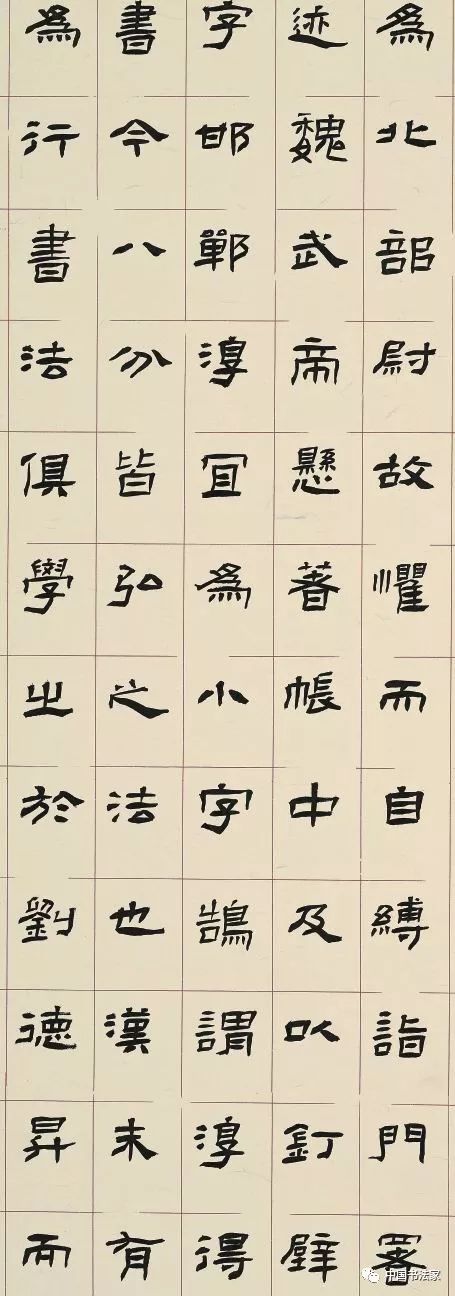 為北部尉故懼而自縛詣門署
迹魏武帝懸著帳中及以釘壁
字邯鄲淳宜為小字鵠謂淳得
書今八分皆弘之法也漢末有
為行書法俱學之於劉德昇而
中国书法家